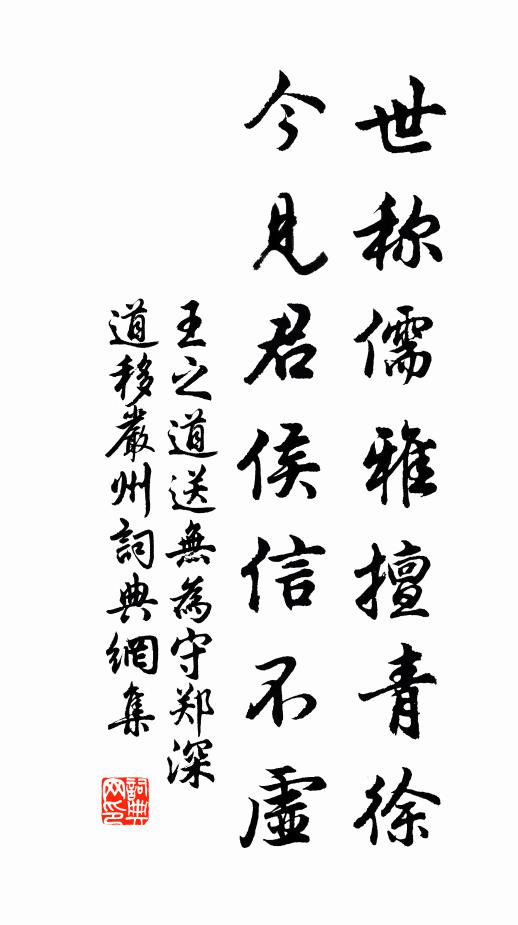 世称儒雅擅青徐
今见君侯信不虚
王之道送無為守郑深
道移嚴州詞典網集
詞典网印